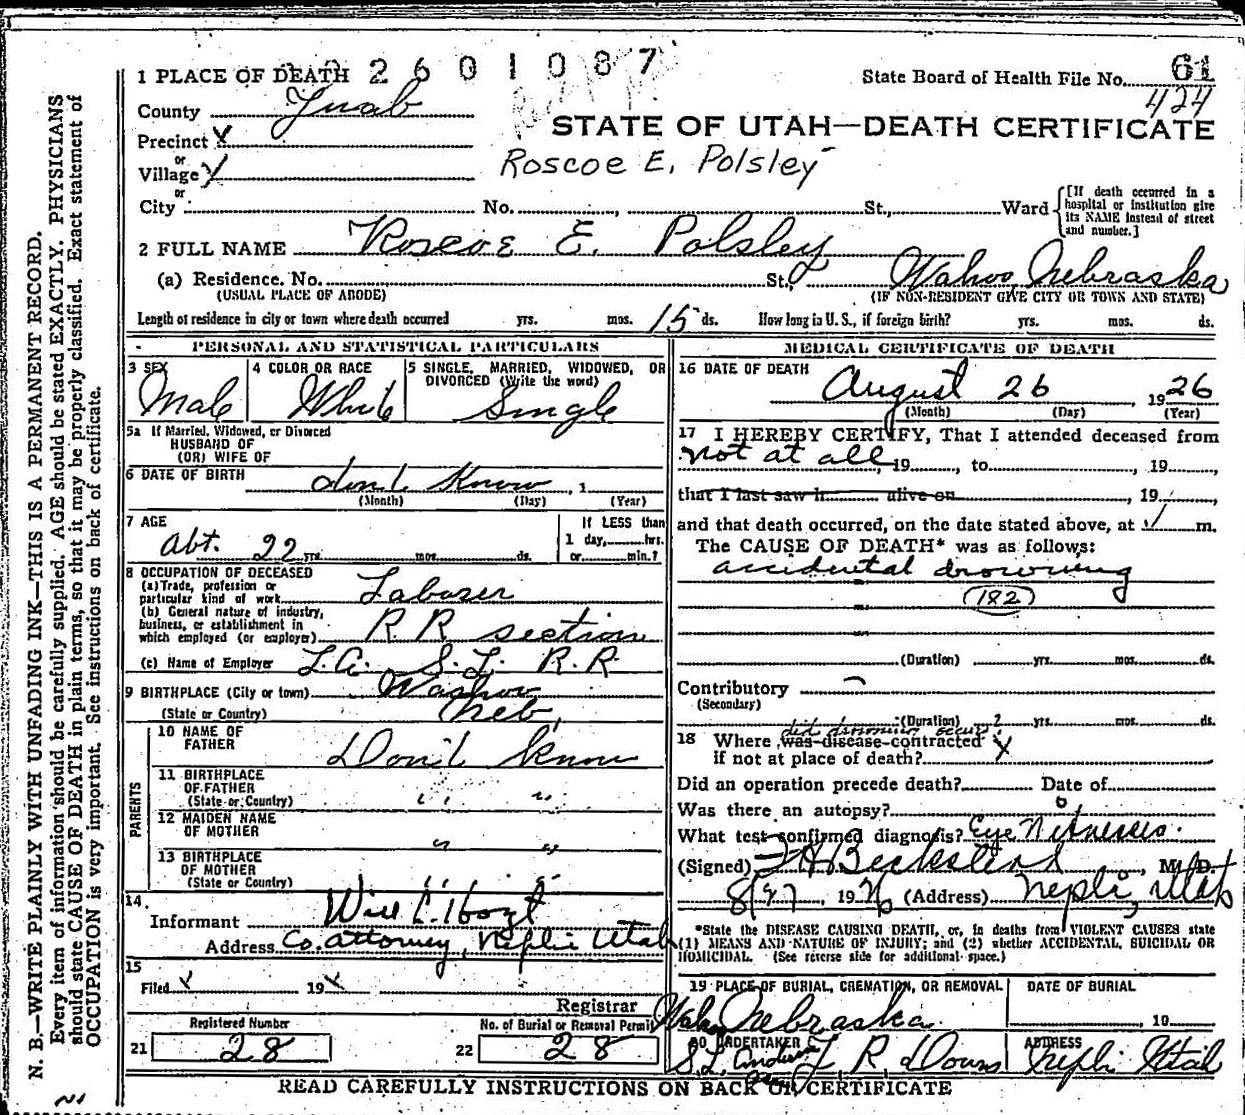 2601087
61
1 PLACE OF DEATH
State Board of Health File No.
424
County Juab
STATE OF UTAH—DEATH CERTIFICATE
Precinct X
or
Village X
Roscoe E. Polsley
or
City No. , St., Ward
[If death occurred in a hospital or institution give its NAME instead of street and number.]
2 FULL NAME Roscoe E. Polsley
(a) Residence. No. St., Wahoo, Nebraska
(USUAL PLACE OF ABODE) (IF NON-RESIDENT GIVE CITY OR TOWN AND STATE)
Length of residence in city or town where death occurred yrs. mos. 15 ds. How long in U. S., if foreign birth? yrs. mos. ds.
PERSONAL AND STATISTICAL PARTICULARS
3 SEX Male
4 COLOR OR RACE White
5 SINGLE, MARRIED, WIDOWED, OR DIVORCED (Write the word) Single
5a If Married, Widowed, or Divorced
HUSBAND OF
(OR) WIFE OF
6 DATE OF BIRTH don't know , 1
(Month) (Day) (Year)
7 AGE
Abt. 22 yrs. mos. ds.
If LESS than
1 day, hrs.
or min.?
8 OCCUPATION OF DECEASED
(a) Trade, profession or
particular kind of work Laborer
(b) General nature of industry,
business, or establishment in
which employed (or employer) R R section
(c) Name of Employer L.A. S.L. R.R.
9 BIRTHPLACE (City or town) Washow
(State or Country) Neb,
PARENTS
10 NAME OF
FATHER Don't know
11 BIRTHPLACE
OF FATHER
(State or Country) " "
12 MAIDEN NAME
OF MOTHER " "
13 BIRTHPLACE
OF MOTHER
(State or Country) " "
14.
Informant Will L. Hoyt
Address Co. attorney, Nephi Utah
15
Filed X 19 X
Registrar
Registered Number
21 28
No. of Burial or Removal Permit
22 28
MEDICAL CERTIFICATE OF DEATH
16 DATE OF DEATH
August 26, 1926
(Month) (Day) (Year)
17 I HEREBY CERTIFY, That I attended deceased from
not at all, 19 , to , 19
that I last saw h alive on , 19
and that death occurred, on the date stated above, at m.
The CAUSE OF DEATH* was as follows:
accidental drowning
(182)
(Duration) yrs. mos. ds.
Contributory
(Secondary)
(Duration) yrs. mos. ds.
did drowning occur
18 Where was disease contracted
if not at place of death? X
Did an operation precede death? Date of
Was there an autopsy?
What test confirmed diagnosis? Eye Witnesses.
(Signed) Beckstead, M. D.
8/27, 1926 (Address) Nephi, Utah
*State the DISEASE CAUSING DEATH, or, in deaths from VIOLENT CAUSES state
(1) MEANS AND NATURE OF INJURY; and (2) whether ACCIDENTAL, SUICIDAL OR
HOMICIDAL. (See reverse side for additional space.)
19 PLACE OF BURIAL, CREMATION, OR REMOVAL
Wahoo Nebraska
DATE OF BURIAL
, 19
20 UNDERTAKER
ADDRESS
Nephi Utah
READ CAREFULLY INSTRUCTIONS ON BACK OF CERTIFICATE
N. B.—WRITE PLAINLY WITH UNFADING INK—THIS IS A PERMANENT RECORD.
Every item of information should be carefully supplied. AGE should be stated EXACTLY. PHYSICIANS
should state CAUSE OF DEATH in plain terms, so that it may be properly classified. Exact statement of
OCCUPATION is very important. See instructions on back of certificate.